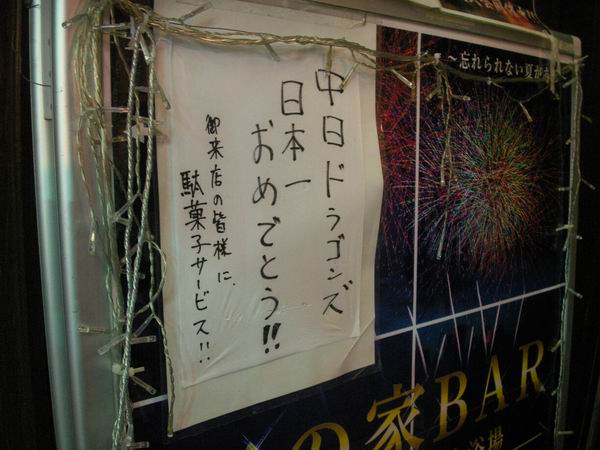 中日ドラゴンズ
日本一
おめでとう!!
御来店の皆様に、
駄菓子サービス!!
～忘れられない夏が
の家BAR
浴場